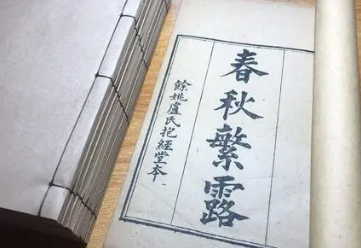 春秋繁露
餘姚盧氏抱經堂本